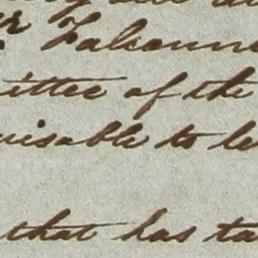 r Falconne
ittee of the
visable to le
that has ta